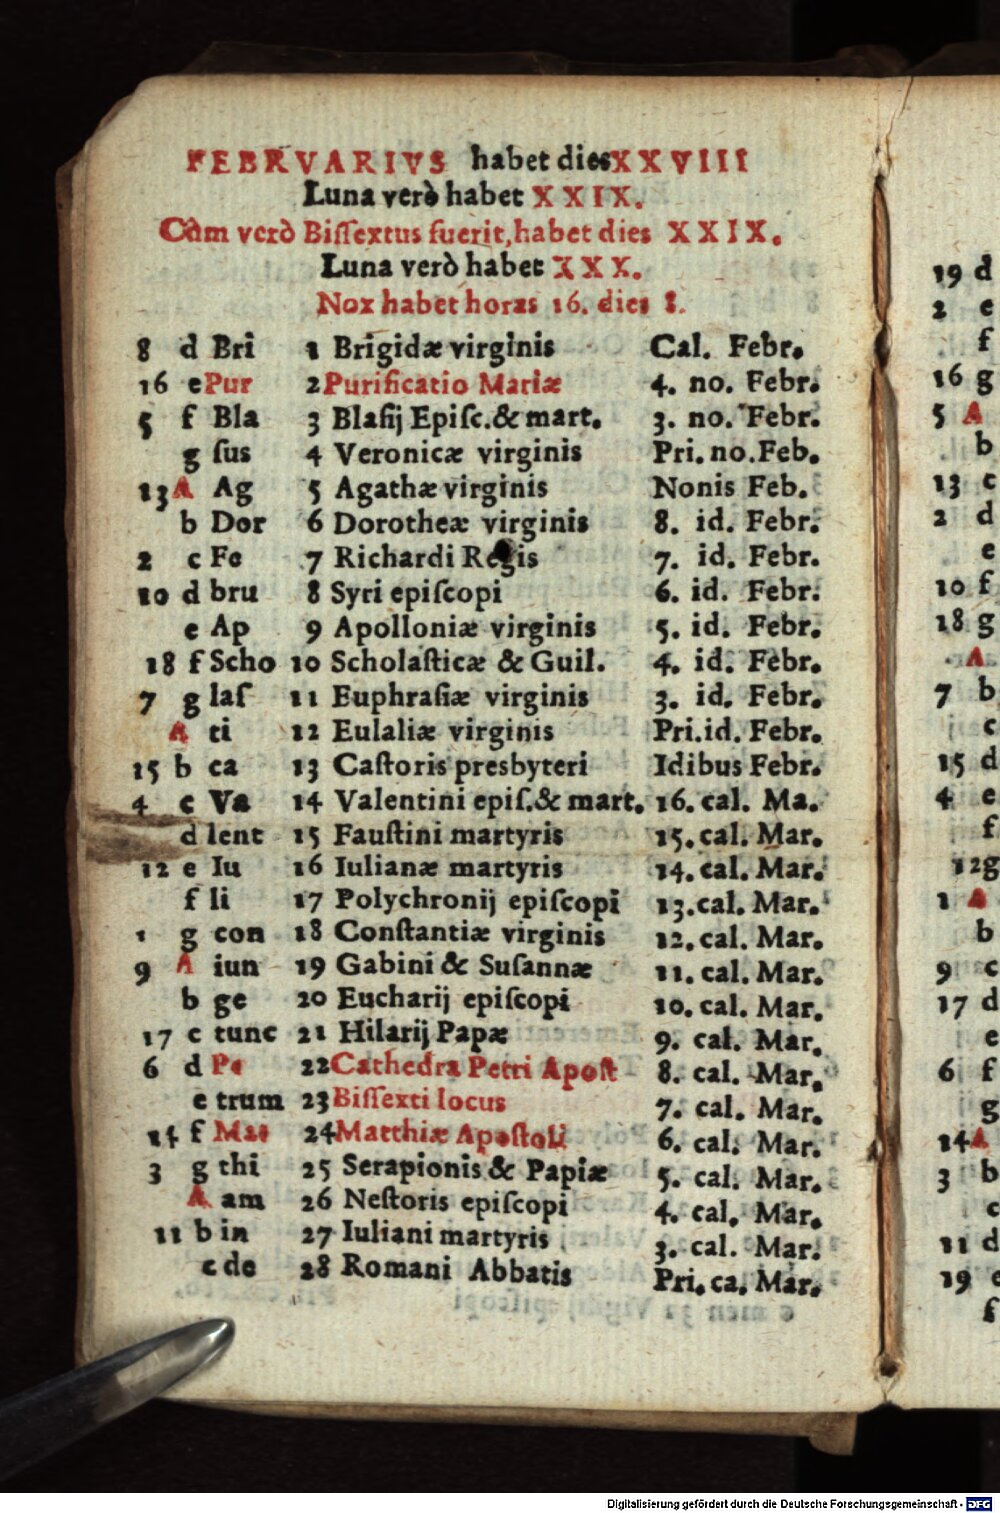 FEBRVARIVS habet dies XXVIII
Luna verò habet XXIX.
Cùm verò Biſſextus fuerit, habet dies XXIX.
Luna verò habet XXX.
Nox habet horas 16. dies 8.
8 d Bri 1 Brigidæ virginis Cal. Febr.
16 e Pur 2 Purificatio Mariæ 4. no. Febr.
5 f Bla 3 Blaſij Epiſc. & mart. 3. no. Febr.
g ſus 4 Veronicæ virginis Pri. no. Feb.
13 A Ag 5 Agathæ virginis Nonis Feb.
b Dor 6 Dorotheæ virginis 8. id. Febr.
2 c Fe 7 Richardi Regis 7. id. Febr.
10 d bru 8 Syri epiſcopi 6. id. Febr.
e Ap 9 Apolloniæ virginis 5. id. Febr.
18 f Scho 10 Scholaſticæ & Guil. 4. id. Febr.
7 g laſ 11 Euphraſiæ virginis 3. id. Febr.
A ti 12 Eulaliæ virginis Pri. id. Febr.
15 b ca 13 Caſtoris presbyteri Idibus Febr.
4 c Va 14 Valentini epiſ. & mart. 16. cal. Ma.
d lent 15 Fauſtini martyris 15. cal. Mar.
12 e Iu 16 Iulianæ martyris 14. cal. Mar.
f li 17 Polychronij epiſcopi 13. cal. Mar.
1 g con 18 Conſtantiæ virginis 12. cal. Mar.
9 A iun 19 Gabini & Suſannæ 11. cal. Mar.
b ge 20 Eucharij epiſcopi 10. cal. Mar.
17 c tunc 21 Hilarij Papæ 9. cal. Mar.
6 d Pe 22 Cathedra Petri Apoſt 8. cal. Mar.
e trum 23 Biſſexti locus 7. cal. Mar.
14 f Mat 24 Matthiæ Apoſtoli 6. cal. Mar.
3 g thi 25 Serapionis & Papiæ 5. cal. Mar.
A am 26 Neſtoris epiſcopi 4. cal. Mar.
11 b in 27 Iuliani martyris 3. cal. Mar.
c de 28 Romani Abbatis Pri. ca. Mar.
19 d
2 e
f
16 g
5 A
b
13 c
2 d
e
10 f
18 g
A
7 b
c
15 d
4 e
f
12 g
1 A
b
9 c
17 d
e
6 f
g
14 A
3 b
c
11 d
19 e
f
Digitalisierung gefördert durch die Deutsche Forschungsgemeinschaft - DFG